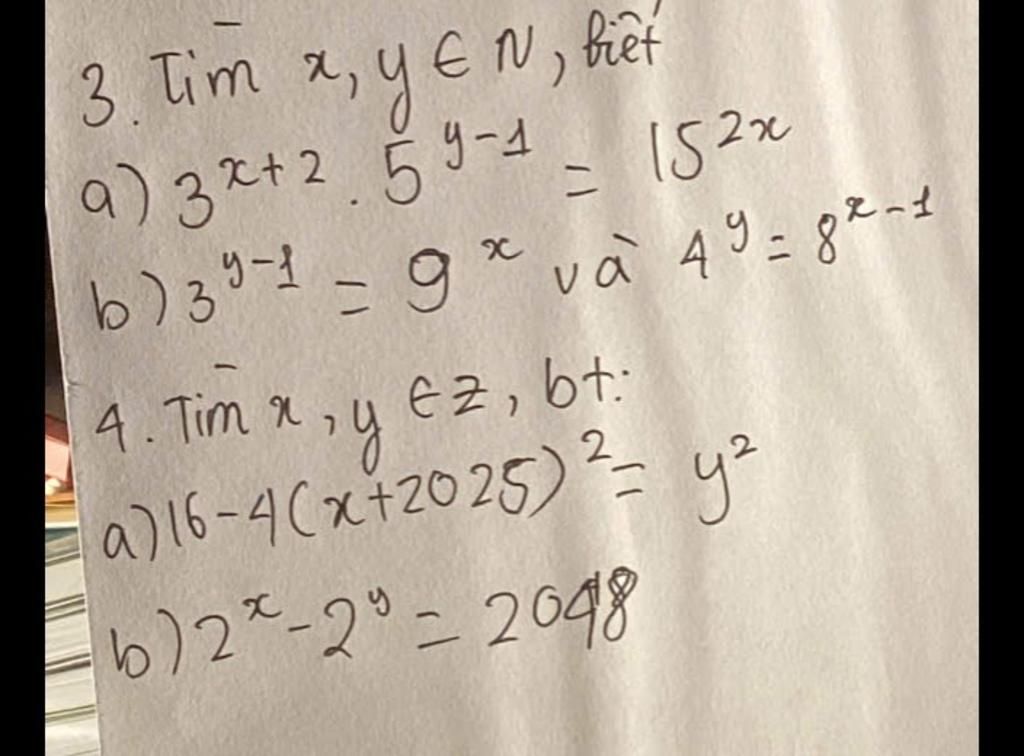 3. Tìm x, y ∈ N, biết
a) 3^{x+2} . 5^{y-1} = 15^{2x}
b) 3^{y-1} = 9^x và 4^y = 8^{x-1}
4. Tìm x, y ∈ Z, bt:
a) 16 - 4(x+2025)^2 = y^2
b) 2^x - 2^y = 2048